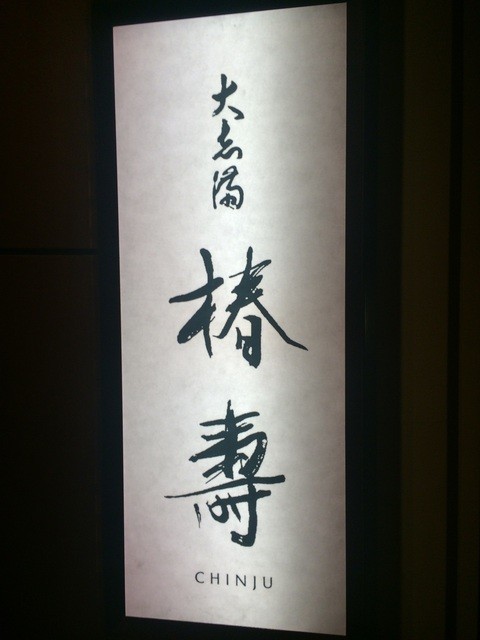 大志満
椿壽
CHINJU